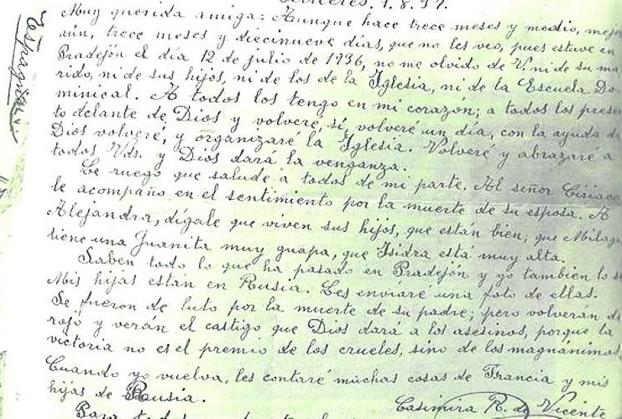 1.8.37.
Muy querida amiga: Aunque hace trece meses y medio, mejor
aún, trece meses y diecinueve días, que no les veo, pues estuve en
Pradejón el día 12 de julio de 1936, no me olvido de V. ni de su ma
rido, ni de sus hijos, ni de los de la Iglesia, ni de la Escuela Do
minical. A todos los tengo en mi corazón; a todos los presen
to delante de Dios y volveré, sí, volveré un día, con la ayuda de
Dios volveré, y organizaré la Iglesia. Volveré y abrazaré a
todos Vds. y Dios dará la venganza.
Le ruego que salude a todos de mi parte. Al señor Ciriaco
le acompaño en el sentimiento por la muerte de su esposa. A
Alejandra, dígale que viven sus hijos, que están bien, que Milagros
tiene una Juanita muy guapa, que Isidra está muy alta.
Saben todo lo que ha pasado en Pradejón y yo también lo sé
Mis hijas están en Rusia. Les enviaré una foto de ellas.
Se fueron de luto por la muerte de su padre; pero volverán de
rojo y verán el castigo que Dios dará a los asesinos, porque la
victoria no es el premio de los crueles, sino de los magnánimos.
Cuando yo vuelva, les contaré muchas cosas de Francia y mis
hijas de Rusia.
Casimira R. de Vicente
Para todos